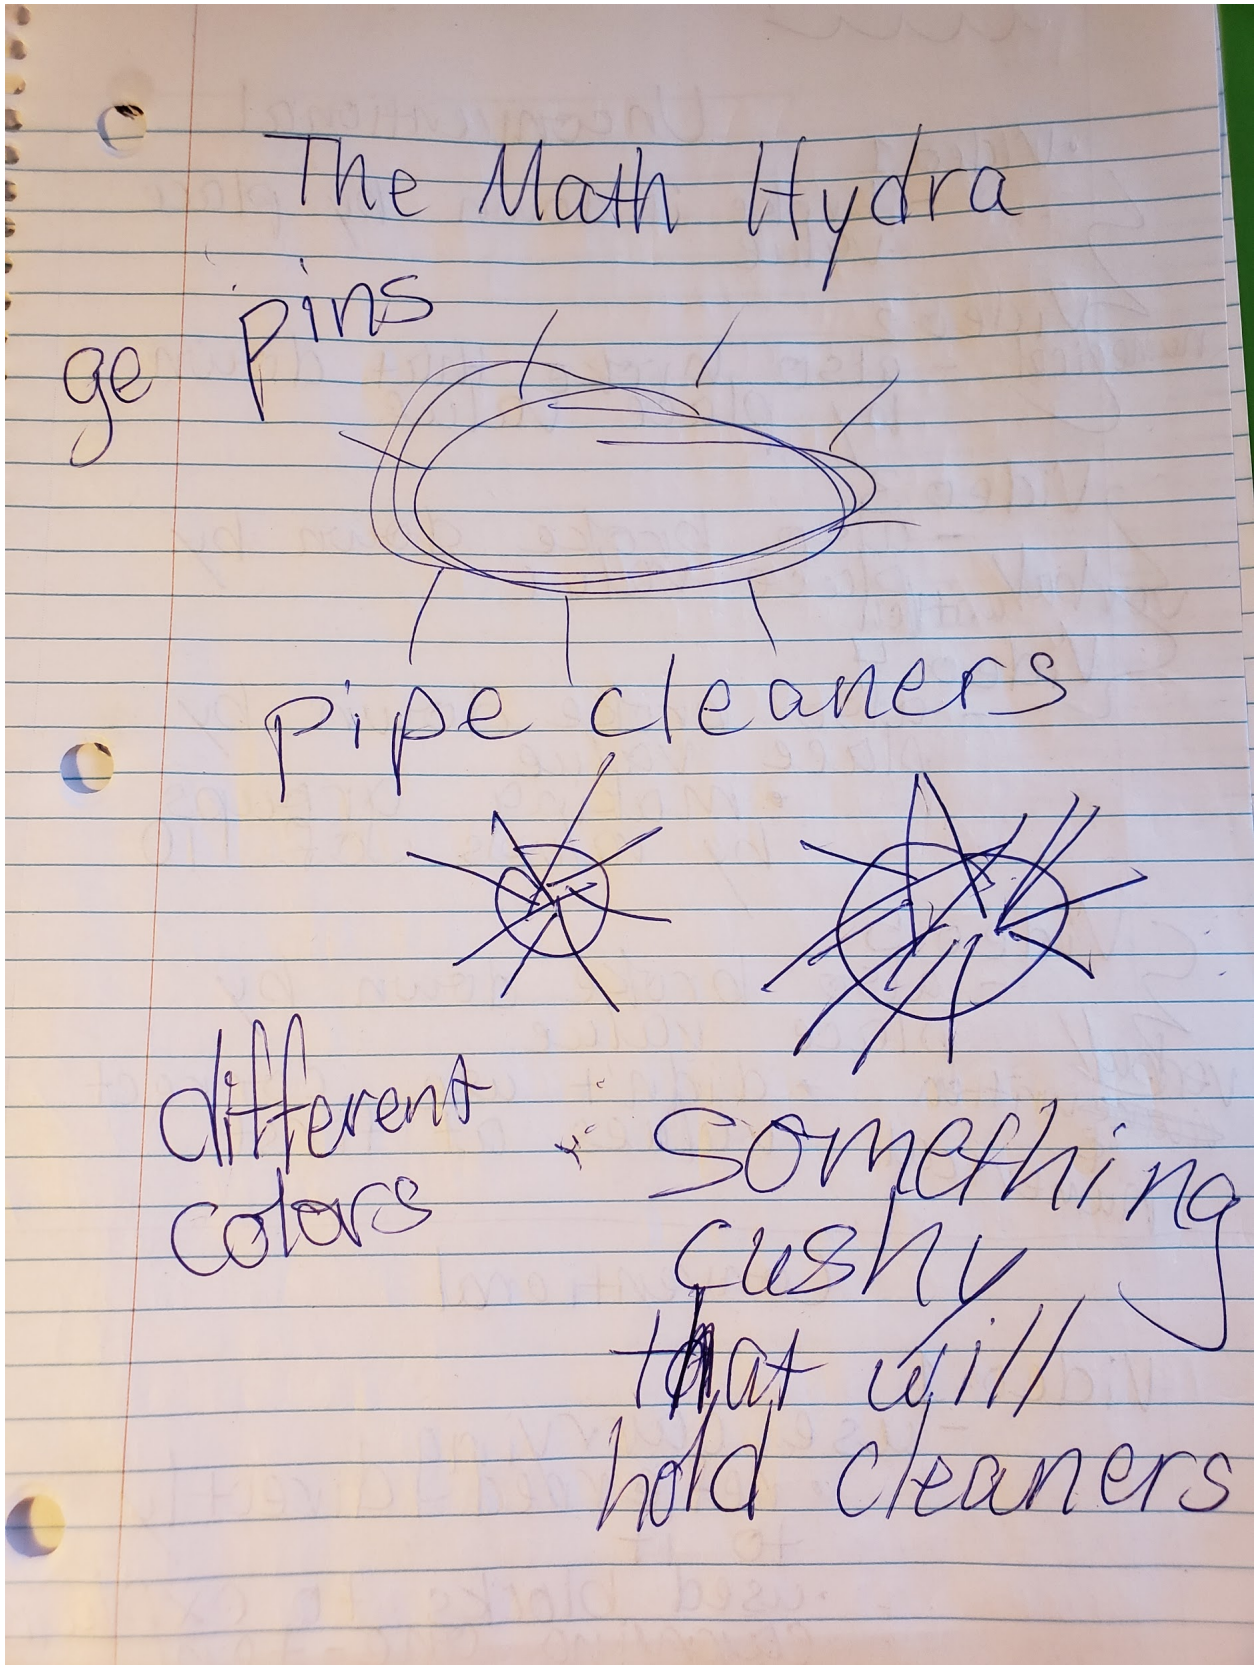 The Math Hydra
pins
ge
pipe cleaners
different
colors
something
cushy
that will
hold cleaners